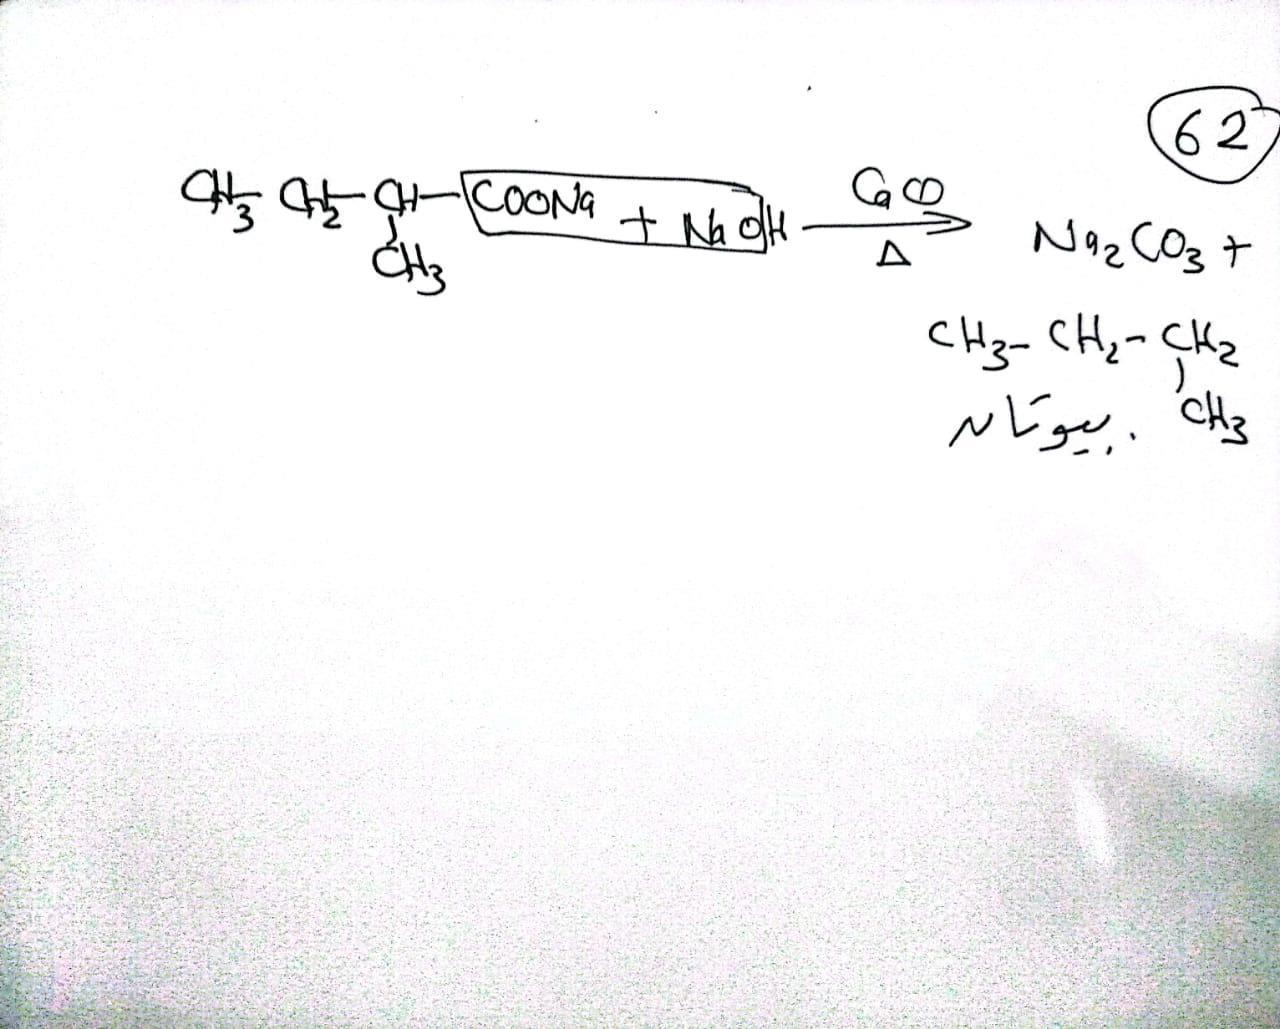 62
CH3-CH2-CH-COONa + NaOH CaO Na2CO3 +
CH3 Δ
CH3-CH2-CH2
CH3
بيوتان